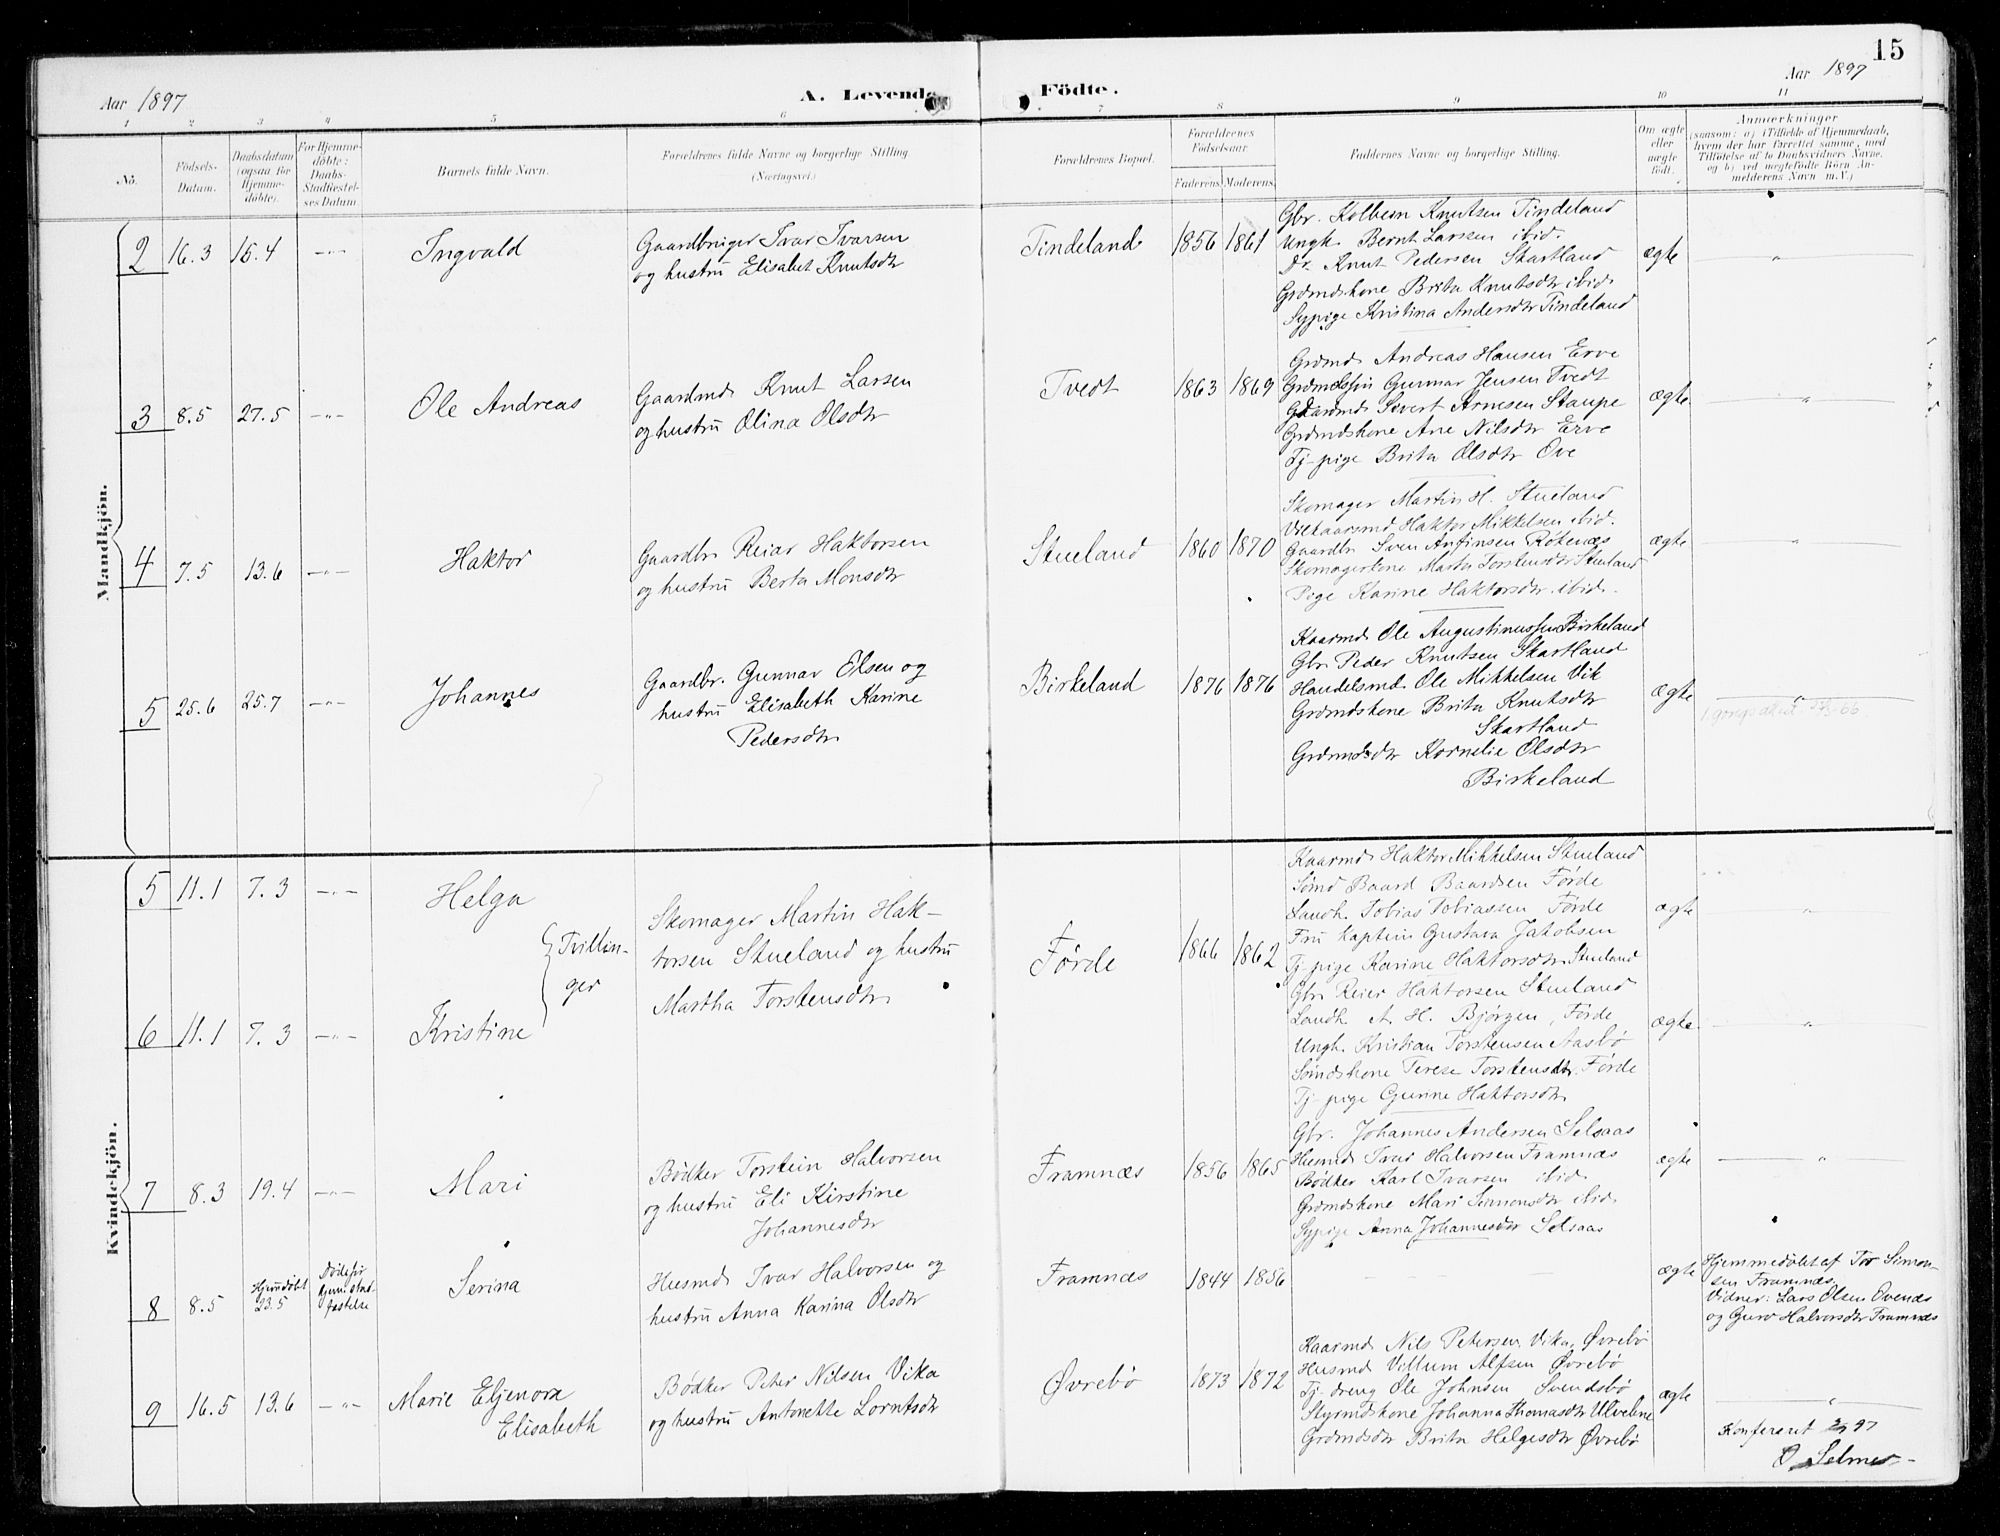 15
Aar 1897
A. Levende
Födte.
Aar 1897
1 2 3 4 5 6 7 8 9 10 11
No.
Födsels-
Datum.
Daabsdatum
(ogsaa for
Hjemme-
döbte).
For Hjemme-
döbte:
Daabs-
Stadfæstel-
ses Datum.
Barnets fulde Navn.
Forældrenes fulde Navne og borgerlige Stilling
(Næringsvei.)
Forældrenes Bopæl.
Forældrenes
Födselsaar.
Faderens. Moderens.
Faddernes Navne og borgerlige Stilling.
Om ægte
eller
uægte
födt.
Anmærkninger
(saasom: a) i Tilfælde af Hjemmedaab,
hvem der har forrettet samme, med
Tilföielse af to Daabsvidners Navne.
og b) ved uægtefödte Börn An-
melderens Navn m. V.)
Mandkjön.
2 16.3 15.4 —"—
Ingvald
Gaardbruger Ivar Ivarsen
og hustru Elisabet Knutsdtr
Tindeland
1856 1861
Gbr. Kolbein Knutsen Tindeland
Ungk. Bernt Larsen ibid.
Dr. Knut Pedersen Skartland
Grdmdskone Brita Knutsdtr ibid.
Sypige Kristina Andersdtr Tindeland
ægte
"
3 8.5 27.5 —"—
Ole Andreas
Gaardmd. Knut Larsen
og hustru Olina Olsdtr
Tvedt
1863 1869
Grdmd. Andreas Hansen Erve
Grdmdssön Gunnar Jensen Tvedt
Gaardmd Sivert Arnesen Staupe
Grdmdskone Ane Nilsdtr Erve
Tj-pige Brita Olsdtr Ove
ægte
"
4 7.5 13.6 —"—
Haktor
Gaardbr. Reiar Haktorsen
og hustru Berta Monsdtr
Stueland
1860 1870
Skomager Martin H. Stueland
Vilkaarsmd Haktor Mikkelsen ibid.
Gaardbr. Sven Anfinsen Rötenæs
Skomagerkone Marta Torstensdtr Stueland
Pige Karine Haktorsdtr. ibid.
ægte
"
5 25.6 25.7 —"—
Johannes
Gaardbr. Gunnar Olsen og
hustru Elisabeth Karine
Pedersdtr
Birkeland
1876 1876
Kaarmd. Ole Augustinussen Birkeland
Gbr. Peder Knutsen Skartland
Handelsmd. Ole Mikkelsen Vik
Grdmdskone Brita Knutsdtr
Skartland
Grdmdsdtr Kornelie Olsdtr
Birkeland
ægte
"
Kvindekjön.
5 11.1 7.3 —"—
Helga
Tvillin-
ger
Skomager Martin Hak-
torsen Stueland og hustru
Martha Torstensdtr
Førde
1866 1862
Kaarmd. Haktor Mikkelsen Stueland
Sømd Baard Baardsen Førde
Landh. Tobias Tobiassen Førde
Fru Kaptein Gustava Jakobsen
Tj-pige Karine Haktorsdtr Stueland
ægte
"
6 11.1 7.3 —"—
Kristine
Gbr. Reier Haktorsen Stueland
Landh. A. H. Bjørgen, Førde
Ungk. Kristian Torstensen Aasbø
Sømdskone Terese Torstensdtr. Førde
Tj-pige Gunne Haktorsdtr
ægte
"
7 8.3 19.4 —"—
Mari
Bødker Torstein Halvorsen
og hustru Eli Kirstine
Johannesdtr
Framnæs
1856 1865
Gbr. Johannes Andersen Selsaas
Husmd. Ivar Halvorsen Framnæs
Bødker Karl Ivarsen ibid.
Grdmdskone Mari Simonsdtr ibid.
Sypige Anna Johannesdtr Selsaas
ægte
"
8 8.5
Hjemdöbt
23.5
Döde før
hjem. stad-
fæstelse
Serina
Husmd. Ivar Halvorsen og
hustru Anna Karina Olsdtr
Framnæs
1844 1856
ægte
Hjemmedöbt af Tor Simon-
sen Framnæs.
Vidner: Lars Olsen Ovenæs
og Guro Halvorsdtr Framnæs
9 16.5 13.6 —"—
Marie Eljenora
Elisabeth
Bødker Peter Nilsen Vika
og hustru Antonette Lorntsdtr
Øvrebö
1873 1872
Kaarmd. Nils Petersen Vika, Øvrebö
Husmd Villum Alfsen Øvrebö
Tj-dreng Ole Johnsen Svendsbö
Styrmdskone Johanna Thomasdtr Ulvelene
Grdmdsdtr Brita Helgesdtr Øvrebö
ægte
"
Konfereret 97
O. Selmer